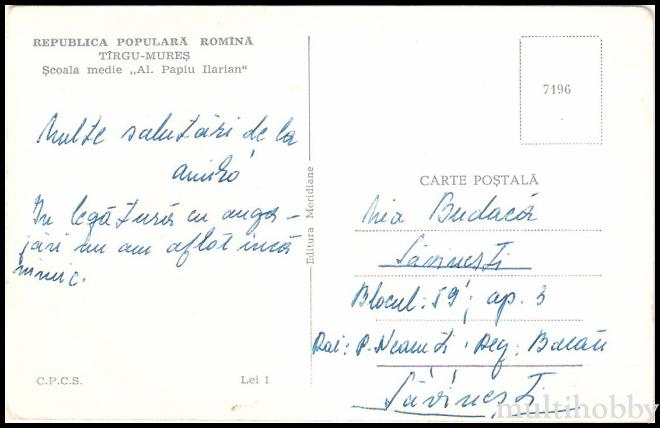 REPUBLICA POPULARĂ ROMÎNĂ
TÎRGU-MUREȘ
Școala medie „Al. Papiu Ilarian“
Multe salutări de la
In legătură cu anga-
jări nu am aflat încă
nimic.
C.P.C.S.
Lei 1
Editura Meridiane
7196
CARTE POȘTALĂ
Budacă
Săvinești
Blocul: 59; ap. 3
Rai: P. Neamț. Reg: Bacău
Săvinești
multihobby